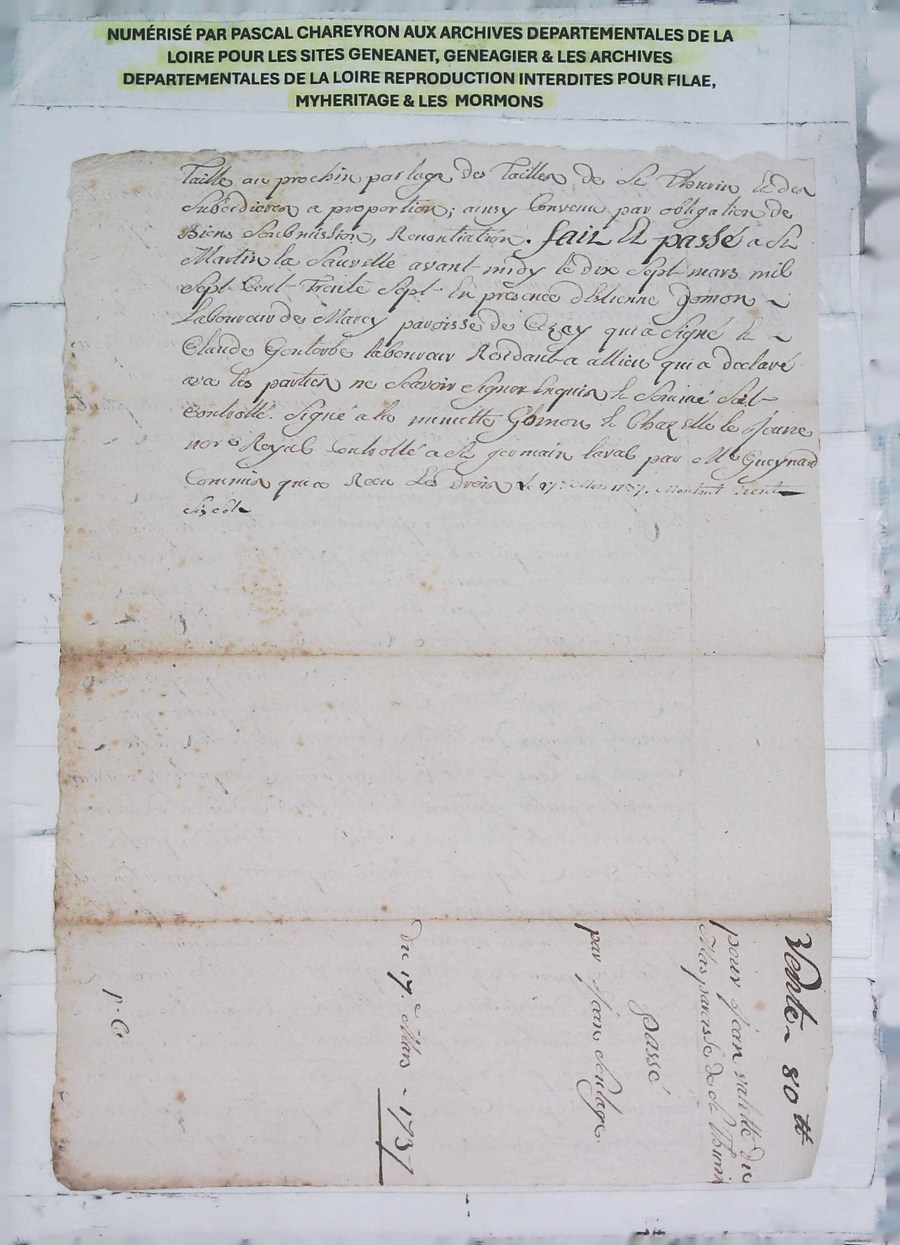 NUMÉRISÉ PAR PASCAL CHAREYRON AUX ARCHIVES DEPARTEMENTALES DE LA
LOIRE POUR LES SITES GENEANET, GENEAGIER & LES ARCHIVES
DEPARTEMENTALES DE LA LOIRE REPRODUCTION INTERDITES POUR FILAE,
MYHERITAGE & LES MORMONS
Taille au prochin partage des Tailles de St Thurin & des
Subcidieres a proportion; ainsy Convenu par obligation de
Biens Soubmission, Renontiation. fait & passé a St
Martin la Sauveté avant midy le dix Sept mars mil
Sept Cent Trente Sept En présence d'Estienne Jomon
Laboureur de Marcy paroisse de Cezay qui a Signé &
Claude laboureur Residant a allieu qui a declaré
les parties ne Scavoir Signer Enquis &
Controllé Signé a la minutte & Chazelle le Jeune
nore Royal Controllé a St germain laval par Me Gueynard
Commis qui a Receu Les droits Le 17e Mars 1737. Montant Trente
Six
Vente 80 tt
pour Jean du
Mas paroisse de St Thurin
passé
par Jean
du 17e Mars 1737
p. C